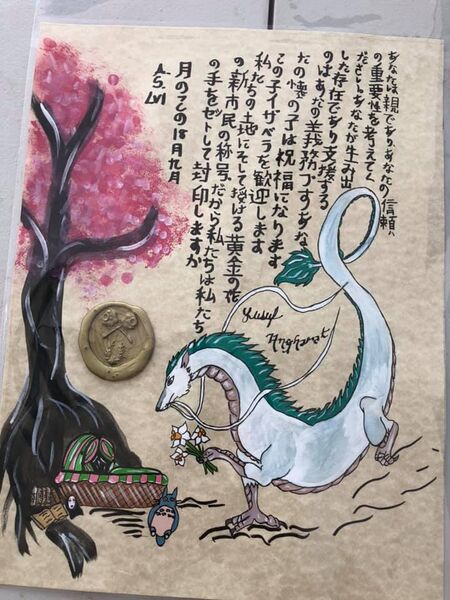 あなたは親であり、あなたの信頼
の重要性を考えてく
ださい、あなたが生み出
した存在であり支援する
のはあなたの義務です。あな
たの懐の子は祝福になります
この子イザベラを歓迎します
私たちの土地にそして授ける黄金の花
の新市民の称号。だから私たちは私たち
の手をセットして封印しますか
月のこの18日九月
A.S. LVI
Yusuf